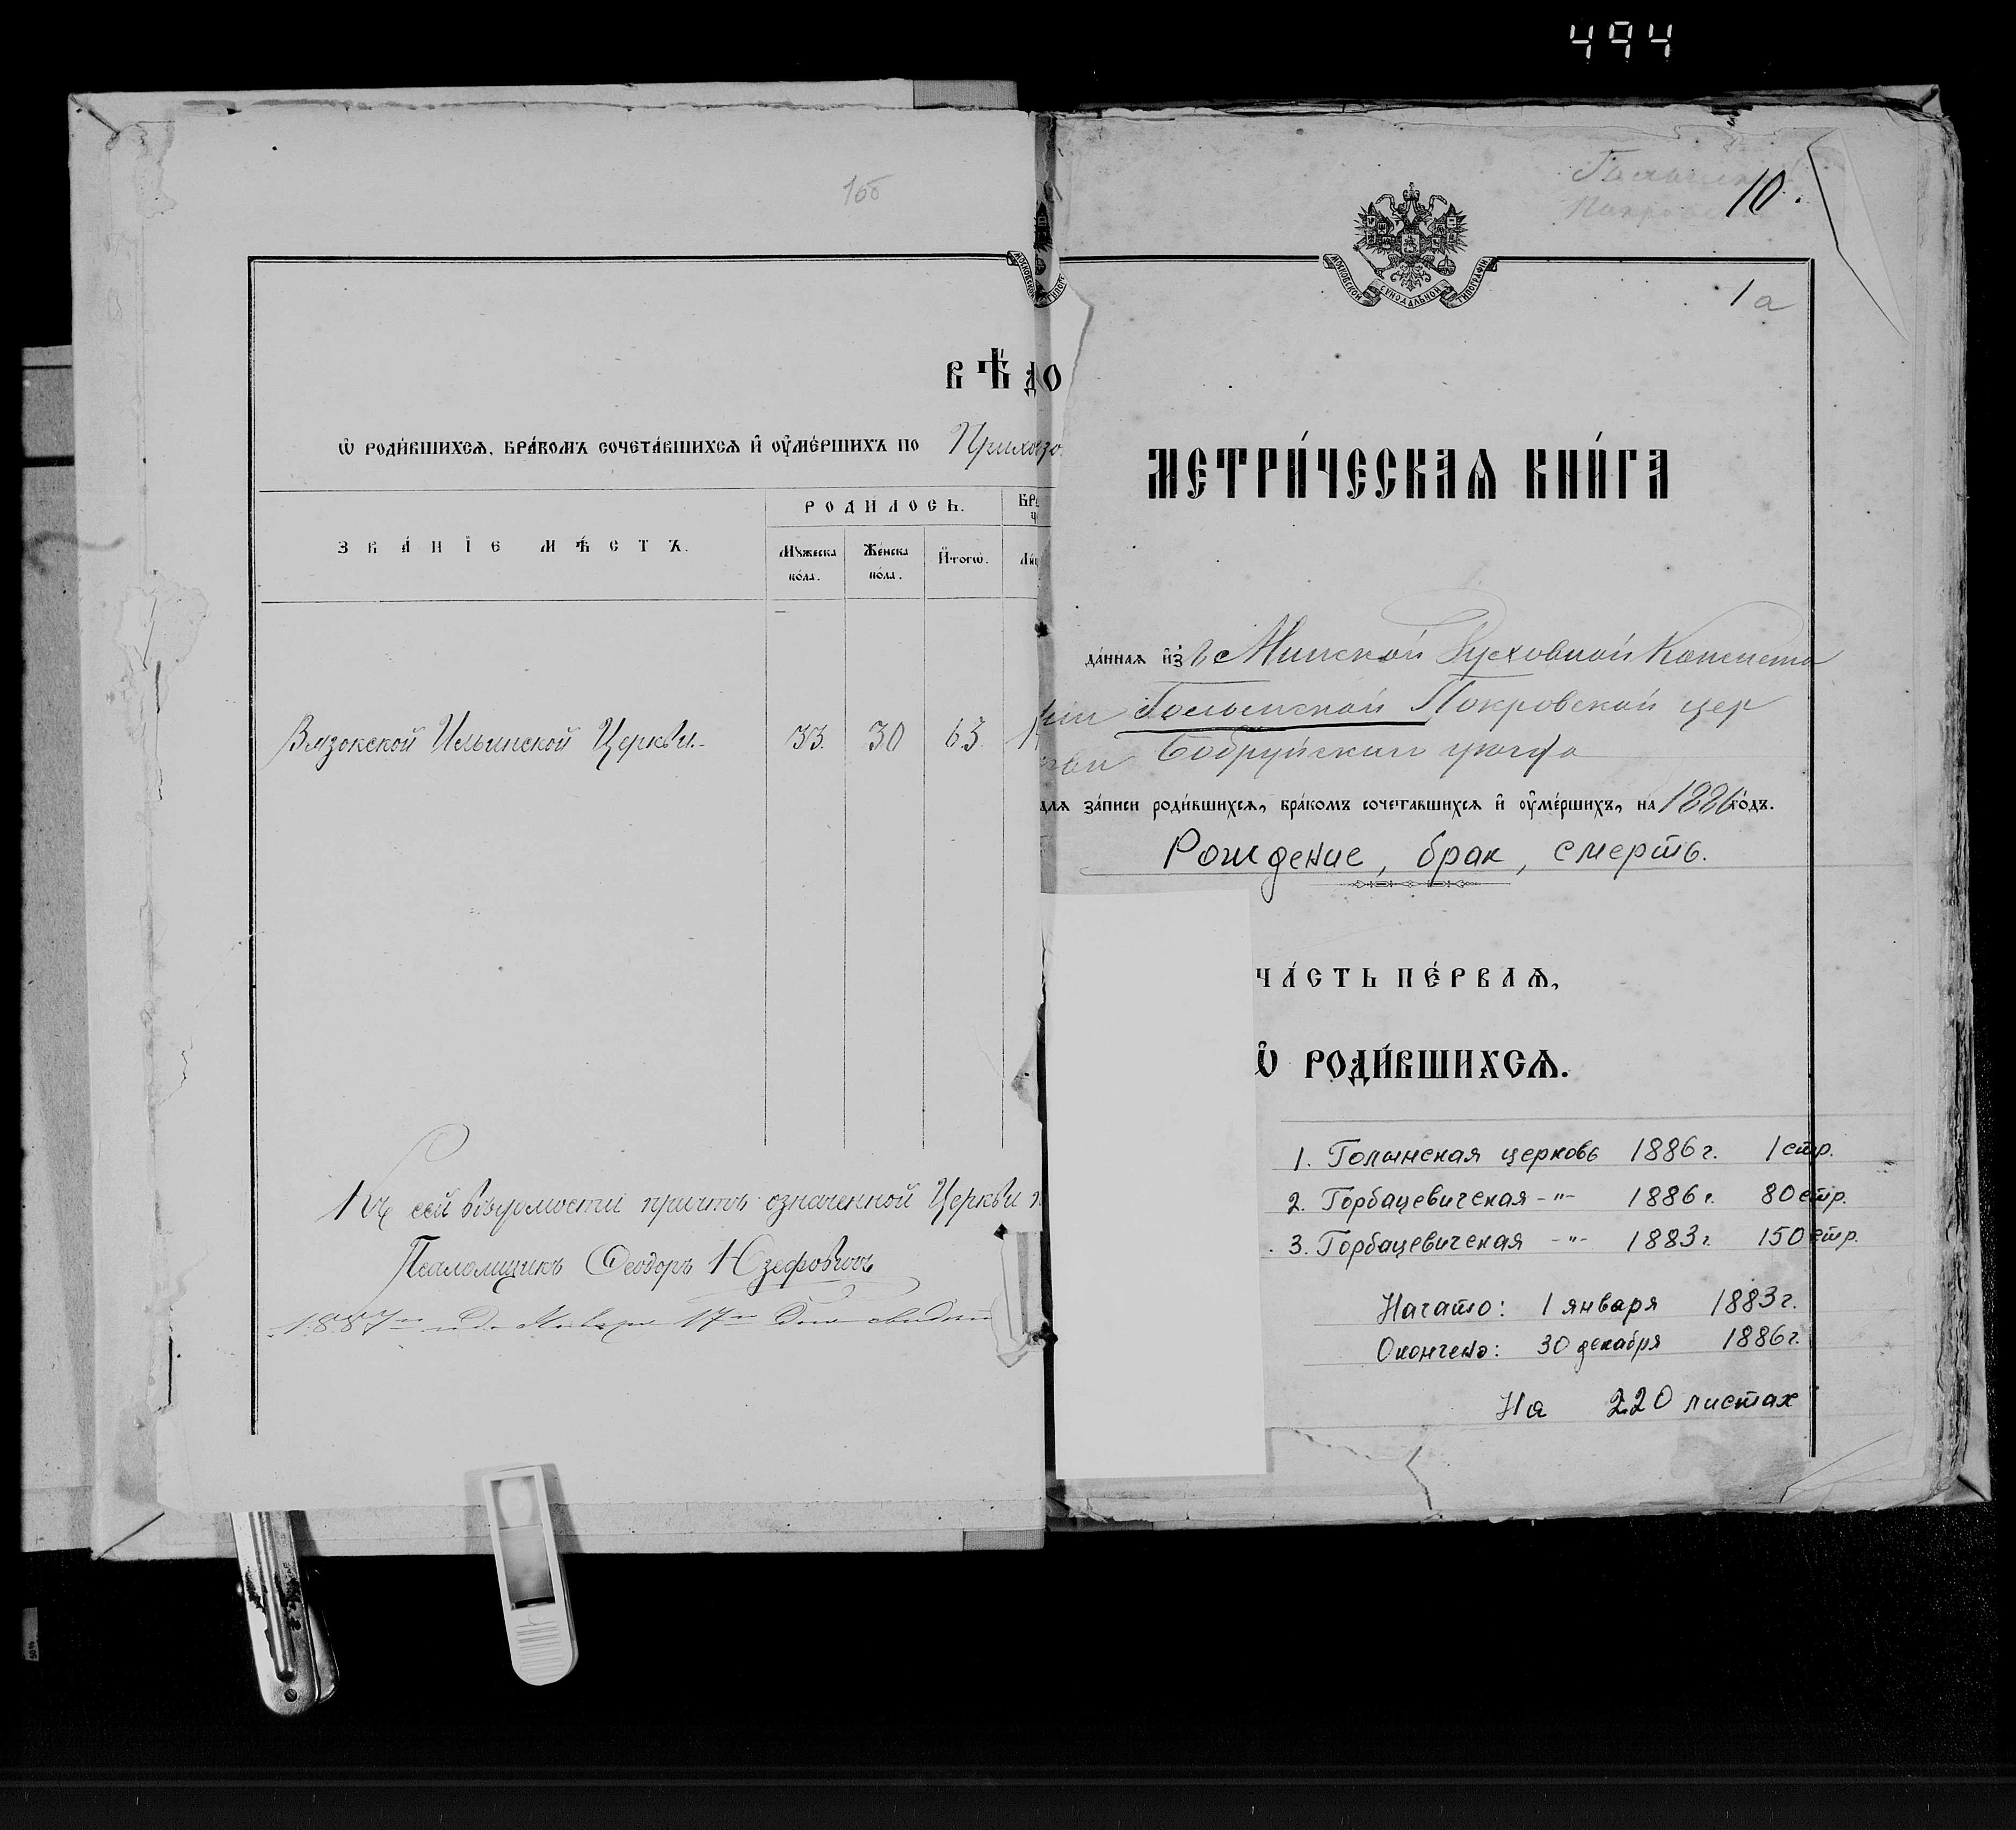 494
10 б
ВѢДО
Ѡ РОДИ́ВШИХСѦ, БРА́КОМЪ СОЧЕТА́ВШИХСѦ И҆ ОУ҆МЕ́РШИХЪ ПО Приходо
ЗВА́НІЕ МѢ́СТЪ. РОДИЛОСЬ.
Мꙋ́жеска по́ла. Же́нска по́ла. И҆тогѡ̀.
Вязокской Ильинской Церкви. 33. 30 63.
Къ сей вѣдомости причтъ означенной Церкви
Псаломщикъ Ѳеодоръ Юзефовичъ
1887го года Января 17го дня
10.
МОСКОВСКОЙ СѴНОДАЛЬНОЙ ТИПОГРАФІИ
1 а
МЕТРИ́ЧЕСКАѦ КНИ́ГА
да́ннаѧ и҆з̾ Минской Духовной Консисто
ріи Голынской Покровской цер
кви Бобруйскаго уѣзда
длѧ за́писи роди́вшихсѧ, бра́комъ сочета́вшихсѧ и҆ оу҆ме́ршихъ, на 1886 го́дъ.
Рождение, брак, смерть.
ЧА́СТЬ ПЕ́РВАѦ,
Ѡ РОДИ́ВШИХСѦ.
1. Голынская церковь 1886 г. 1 стр.
2. Горбацевичская -"- 1886 г. 80 стр.
3. Горбацевичская -"- 1883 г. 150 стр.
Начато: 1 января 1883 г.
Окончено: 30 декабря 1886 г.
На 220 листах